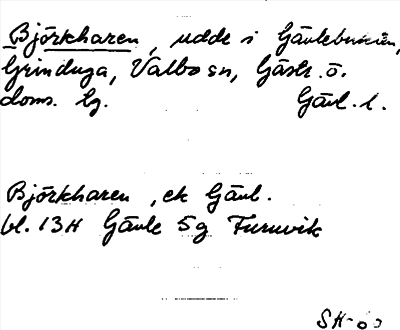 Björkharen, udde i Gävlebukten,
Grinduga, Valbo sn, Gästr. ö.
doms. hg. Gävl. l.
Björkharen, ek Gävl.
bl. 13H Gävle 5g Furuvik